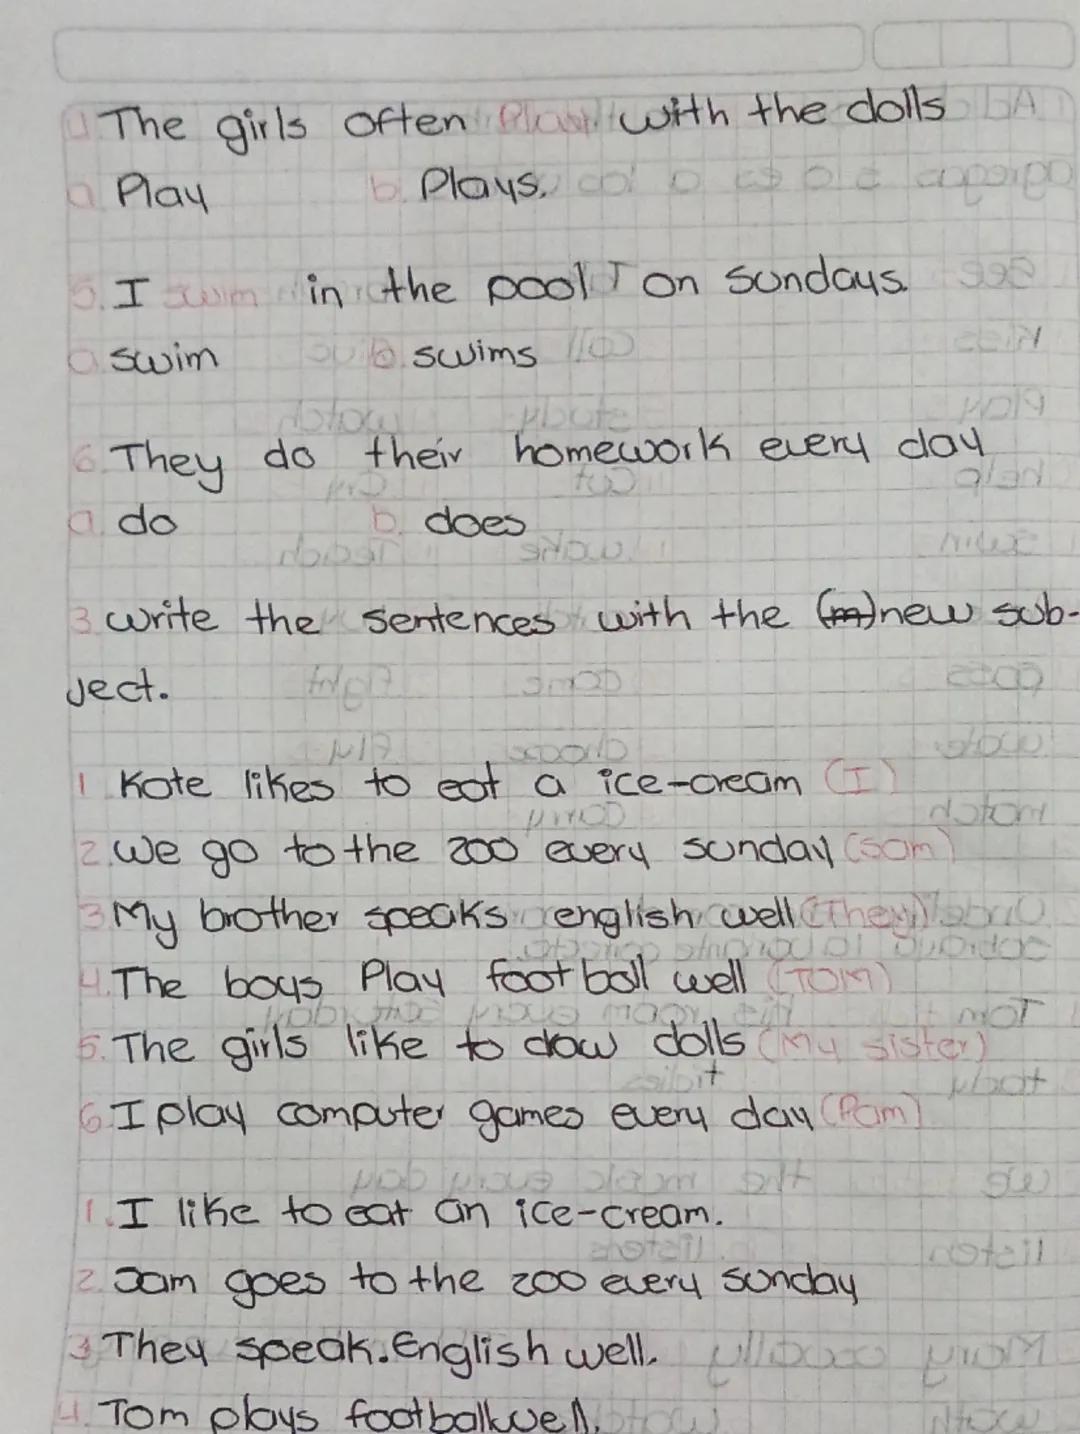 4 The girls often Play with the dolls
a. Play b. Plays.
5. I swim in the pool on sundays.
a. swim b. swims
6. They do their homework every day
a. do b. does
3. write the sentences with the (m)new sub-
ject.
1 Kate likes to eat a ice-cream (I)
2. We go to the zoo every sunday (Sam)
3 My brother speaks english well (They)
4. The boys Play football well (TOM)
5. The girls like to draw dolls (My sister)
6. I play computer games every day (Pam)
1. I like to eat an ice-cream.
2. Sam goes to the zoo every sunday
3. They speak. English well.
4. Tom plays football well.